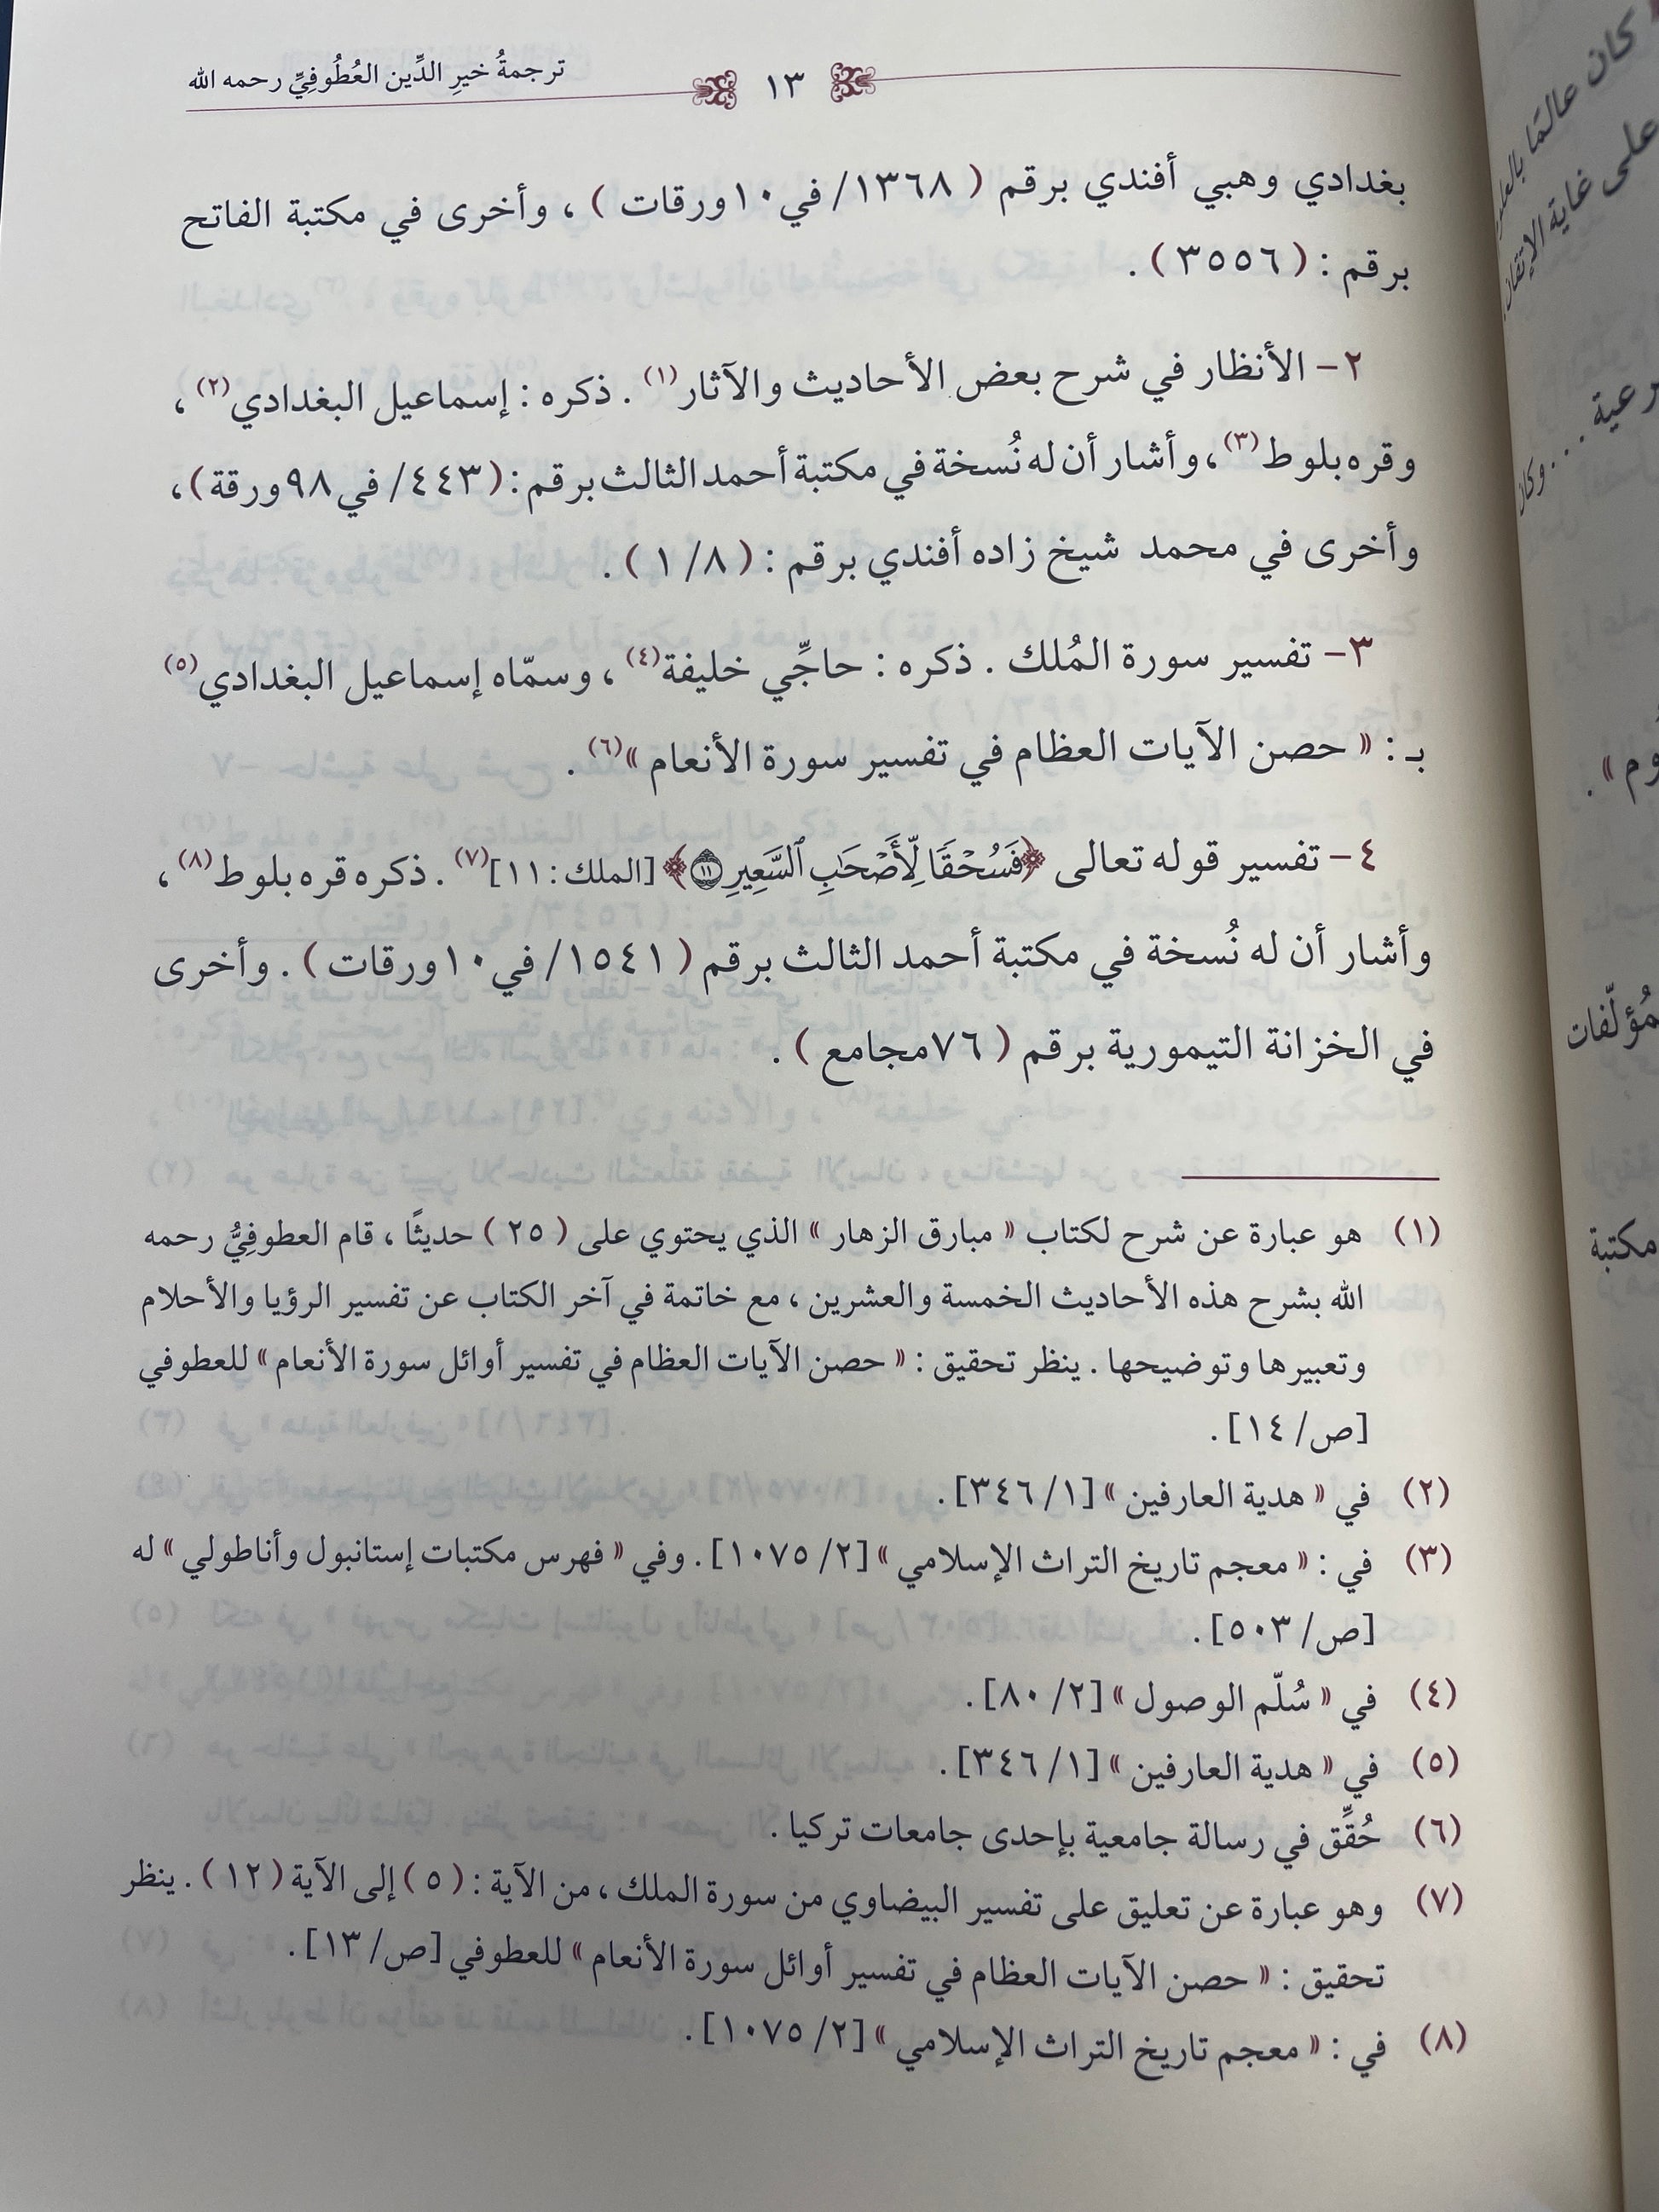 ترجمةُ خيرِ الدِّين العُطُوفِيِّ رحمه الله
١٣
بغدادي وهبي أفندي برقم ( ١٣٦٨/ في ١٠ ورقات ) ، وأخرى في مكتبة الفاتح
برقم : ( ٣٥٥٦ ) .
٢- الأنظار في شرح بعض الأحاديث والآثار(١) . ذكره : إسماعيل البغدادي(٢) ،
وقره بلوط(٣)، وأشار أن له نُسخة في مكتبة أحمد الثالث برقم : ( ٤٤٣/ في ٩٨ ورقة ) ،
وأخرى في محمد شيخ زاده أفندي برقم : ( ١/٨ ) .
٣- تفسير سورة المُلك . ذكره : حاجِّي خليفة(٤) ، وسمّاه إسماعيل البغدادي(٥)
بـ : « حصن الآيات العظام في تفسير سورة الأنعام »(٦) .
٤- تفسير قوله تعالى ﴿فَسُحْقًا لِّأَصْحَٰبِ ٱلسَّعِيرِ ۝١١﴾ [الملك : ١١](٧) . ذكره قره بلوط(٨) ،
وأشار أن له نُسخة في مكتبة أحمد الثالث برقم ( ١٥٤١/ في ١٠ ورقات ) . وأخرى
في الخزانة التيمورية برقم ( ٧٦ مجامع ) .
(١) هو عبارة عن شرح لكتاب « مبارق الزهار » الذي يحتوي على ( ٢٥ ) حديثًا ، قام العطوفِيُّ رحمه
الله بشرح هذه الأحاديث الخمسة والعشرين ، مع خاتمة في آخر الكتاب عن تفسير الرؤيا والأحلام
وتعبيرها وتوضيحها . ينظر تحقيق : « حصن الآيات العظام في تفسير أوائل سورة الأنعام » للعطوفي
[ص/ ١٤] .
(٢) في « هدية العارفين » [١/ ٣٤٦] .
(٣) في : « معجم تاريخ التراث الإسلامي » [٢/ ١٠٧٥] . وفي « فهرس مكتبات إستانبول وأناطولي » له
[ص/ ٥٠٣] .
(٤) في « سُلّم الوصول » [٢/ ٨٠] .
(٥) في « هدية العارفين » [١/ ٣٤٦] .
(٦) حُقِّق في رسالة جامعية بإحدى جامعات تركيا .
(٧) وهو عبارة عن تعليق على تفسير البيضاوي من سورة الملك ، من الآية : ( ٥ ) إلى الآية ( ١٢ ) . ينظر
تحقيق : « حصن الآيات العظام في تفسير أوائل سورة الأنعام » للعطوفي [ص/ ١٣] .
(٨) في : « معجم تاريخ التراث الإسلامي » [٢/ ١٠٧٥] .
كان عالمًا
على غاية الإتقان
وكان
مكتبة